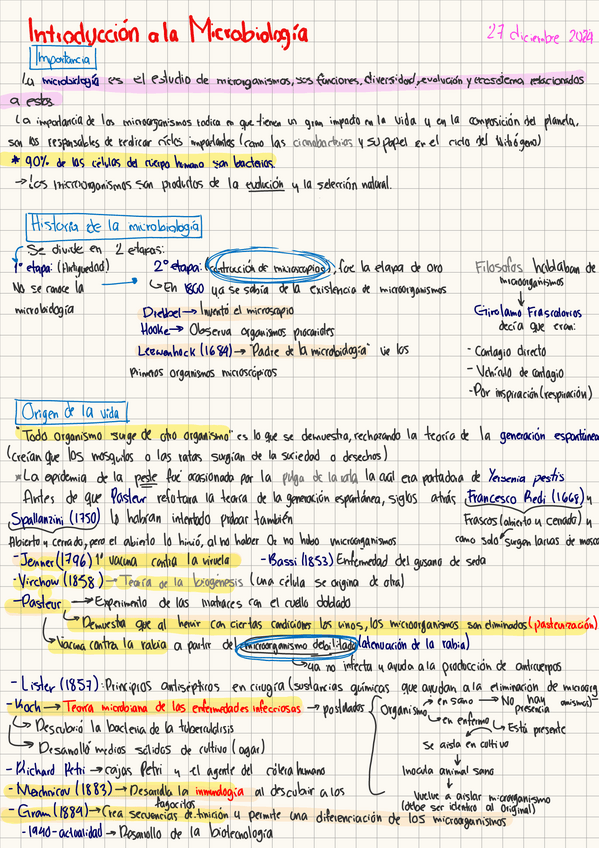 Introducción a la Microbiología
27 diciembre 2024
Importancia
La microbiología es el estudio de microorganismos, sus funciones, diversidad, evolución y ecosistema relacionados
a estos.
La importancia de los microorganismos radica en que tienen un gran impacto en la vida y en la composición del planeta,
son los responsables de realizar ciclos importantes (como las cianobacterias y su papel en el ciclo del Nitrógeno)
* 90% de las células del cuerpo humano son bacterias.
→ Los microorganismos son productos de la evolución y la selección natural.
Historia de la microbiología
Se divide en 2 etapas:
1° etapa: (Antiguedad)
No se conoce la
microbiología
2° etapa: (construcción de microscopios), fue la etapa de oro
↳ En 1800 ya se sabía de la existencia de microorganismos
Drebbel → Inventó el microscopio
Hooke → Observa organismos procariotes
Leewenhock (1684) → "Padre de la microbiología" ve los
primeros organismos microscópicos
Filosofos hablaban de
microorganismos
Girolamo Frascatorios
decía que eran:
- Contagio directo
- Vehículo de contagio
- Por inspiración (respiración)
Origen de la vida
"Todo organismo surge de otro organismo" es lo que se demuestra, rechazando la teoría de la generación espontánea
(creían que los mosquitos o las ratas surgían de la suciedad o desechos)
*La epidemia de la peste fue ocasionada por la pulga de la rata la cual era portadora de Yersenia pestis
Antes de que Pasteur refutara la teoría de la generación espontánea, siglos atrás Francesco Redi (1668) y
Spallanzini (1750) lo habían intentado probar también
Frascos (abierto y cerrado) y
Abierto y cerrado, pero el abierto lo hirvió, al no haber O₂ no hubo microorganismos
como solo surgen larvas de mosca
- Jenner (1796) 1° vacuna contra la viruela
- Bassi (1853) Enfermedad del gusano de seda
- Virchow (1858) → Teoría de la biogénesis (una célula se origina de otra)
- Pasteur → Experimento de las matraces con el cuello doblado
↳ Demuestra que al hervir con ciertas condiciones los vinos, los microorganismos son eliminados (pasteurización)
↳ Vacuna contra la rabia a partir del microorganismo debilitado (atenuación de la rabia)
↳ ya no infecta y ayuda a la producción de anticuerpos
- Lister (1857): Principios antisépticos en cirugía (sustancias químicas que ayudan a la eliminación de microorg
anismos)
- Koch → Teoría microbiana de las enfermedades infecciosas → postulados
↳ Descubrió la bacteria de la tuberculosis
↳ Desarrolló medios sólidos de cultivo (agar)
Organismo
→ en sano → No hay presencia
↳ en enfermo ↳ Está presente
Se aisla en cultivo
Inocula animal sano
Vuelve a aislar microorganismo
(debe ser identico al original)
- Richard Petri → cajas Petri y el agente del cólera humano
- Mechnicov (1883) → Desarrolla la inmunología al descubrir a los
fagocitos
- Gram (1884) → Crea secuencias de tinción y permite una diferenciación de los microorganismos
- 1940-actualidad → Desarrollo de la biotecnología